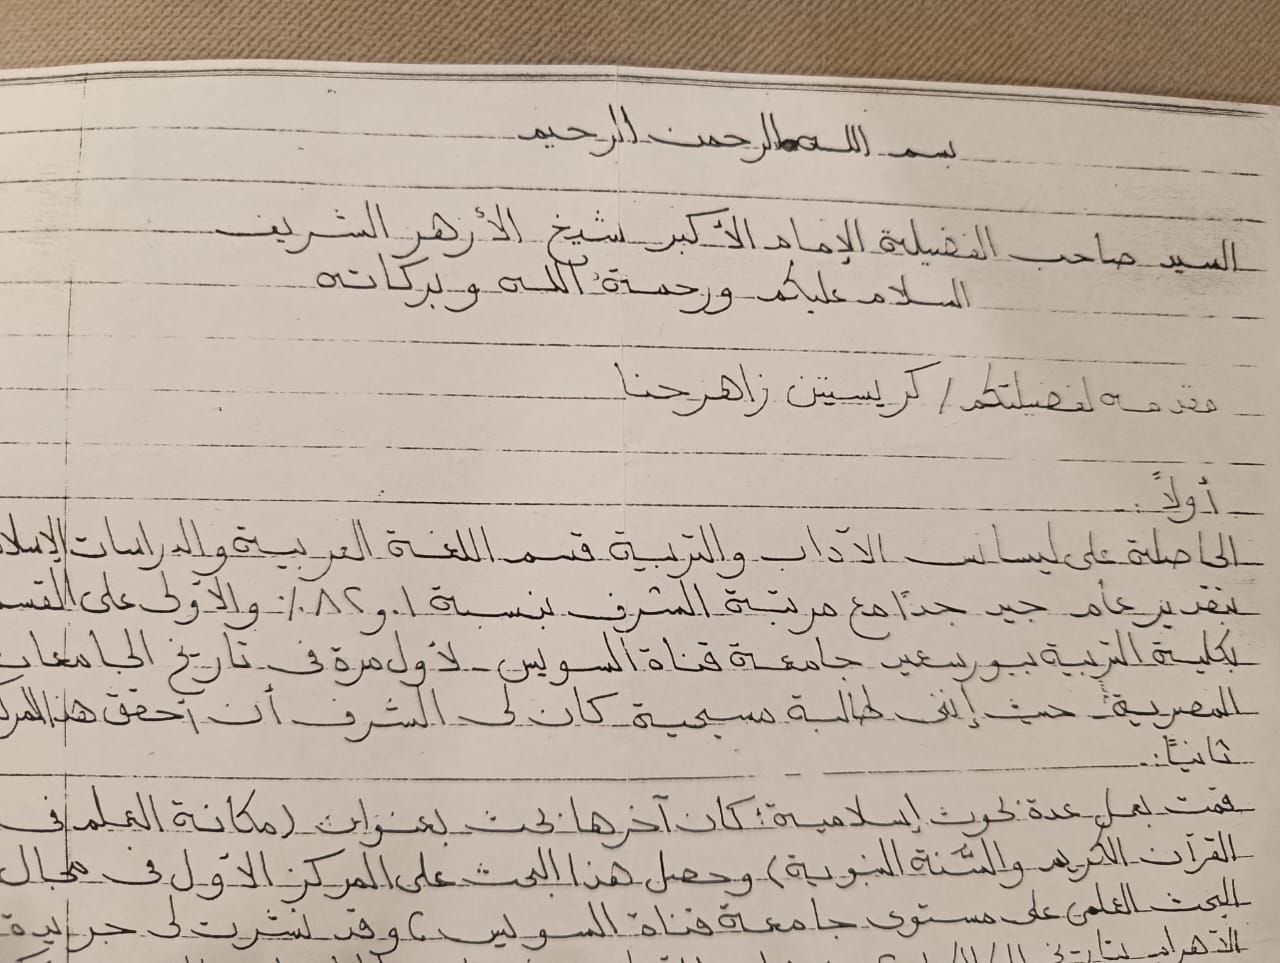 بسم الله الرحمن الرحيم
السيد صاحب الفضيلة الإمام الأكبر شيخ الأزهر الشريف
السلام عليكم ورحمة الله وبركاته
مقدمه لفضيلتكم / كريستين زاهر حنا
أولاً:
الحاصلة على ليسانس الآداب والتربية قسم اللغة العربية والدراسات الإسلا
بتقدير عام جيد جدًا مع مرتبة الشرف بنسبة ٨٢٪ والأولى على القسم
بكلية التربية ببورسعيد جامعة قناة السويس - لأول مرة فى تاريخ الجامعات
المصرية - حيث إننى طالبة مسيحية كان لى الشرف أن أحقق هذا المرك
ثانيًا:
قمت بعمل عدة بحوث إسلامية، كان آخرها بحث بعنوان (مكانة العلم فى
القرآن الكريم والسُّنة النبوية) وحصل هذا البحث على المركز الأول فى مجال
البحث العلمى على مستوى جامعة قناة السويس، وقد نشرت لى جريدة
الأهرام بتاريخ